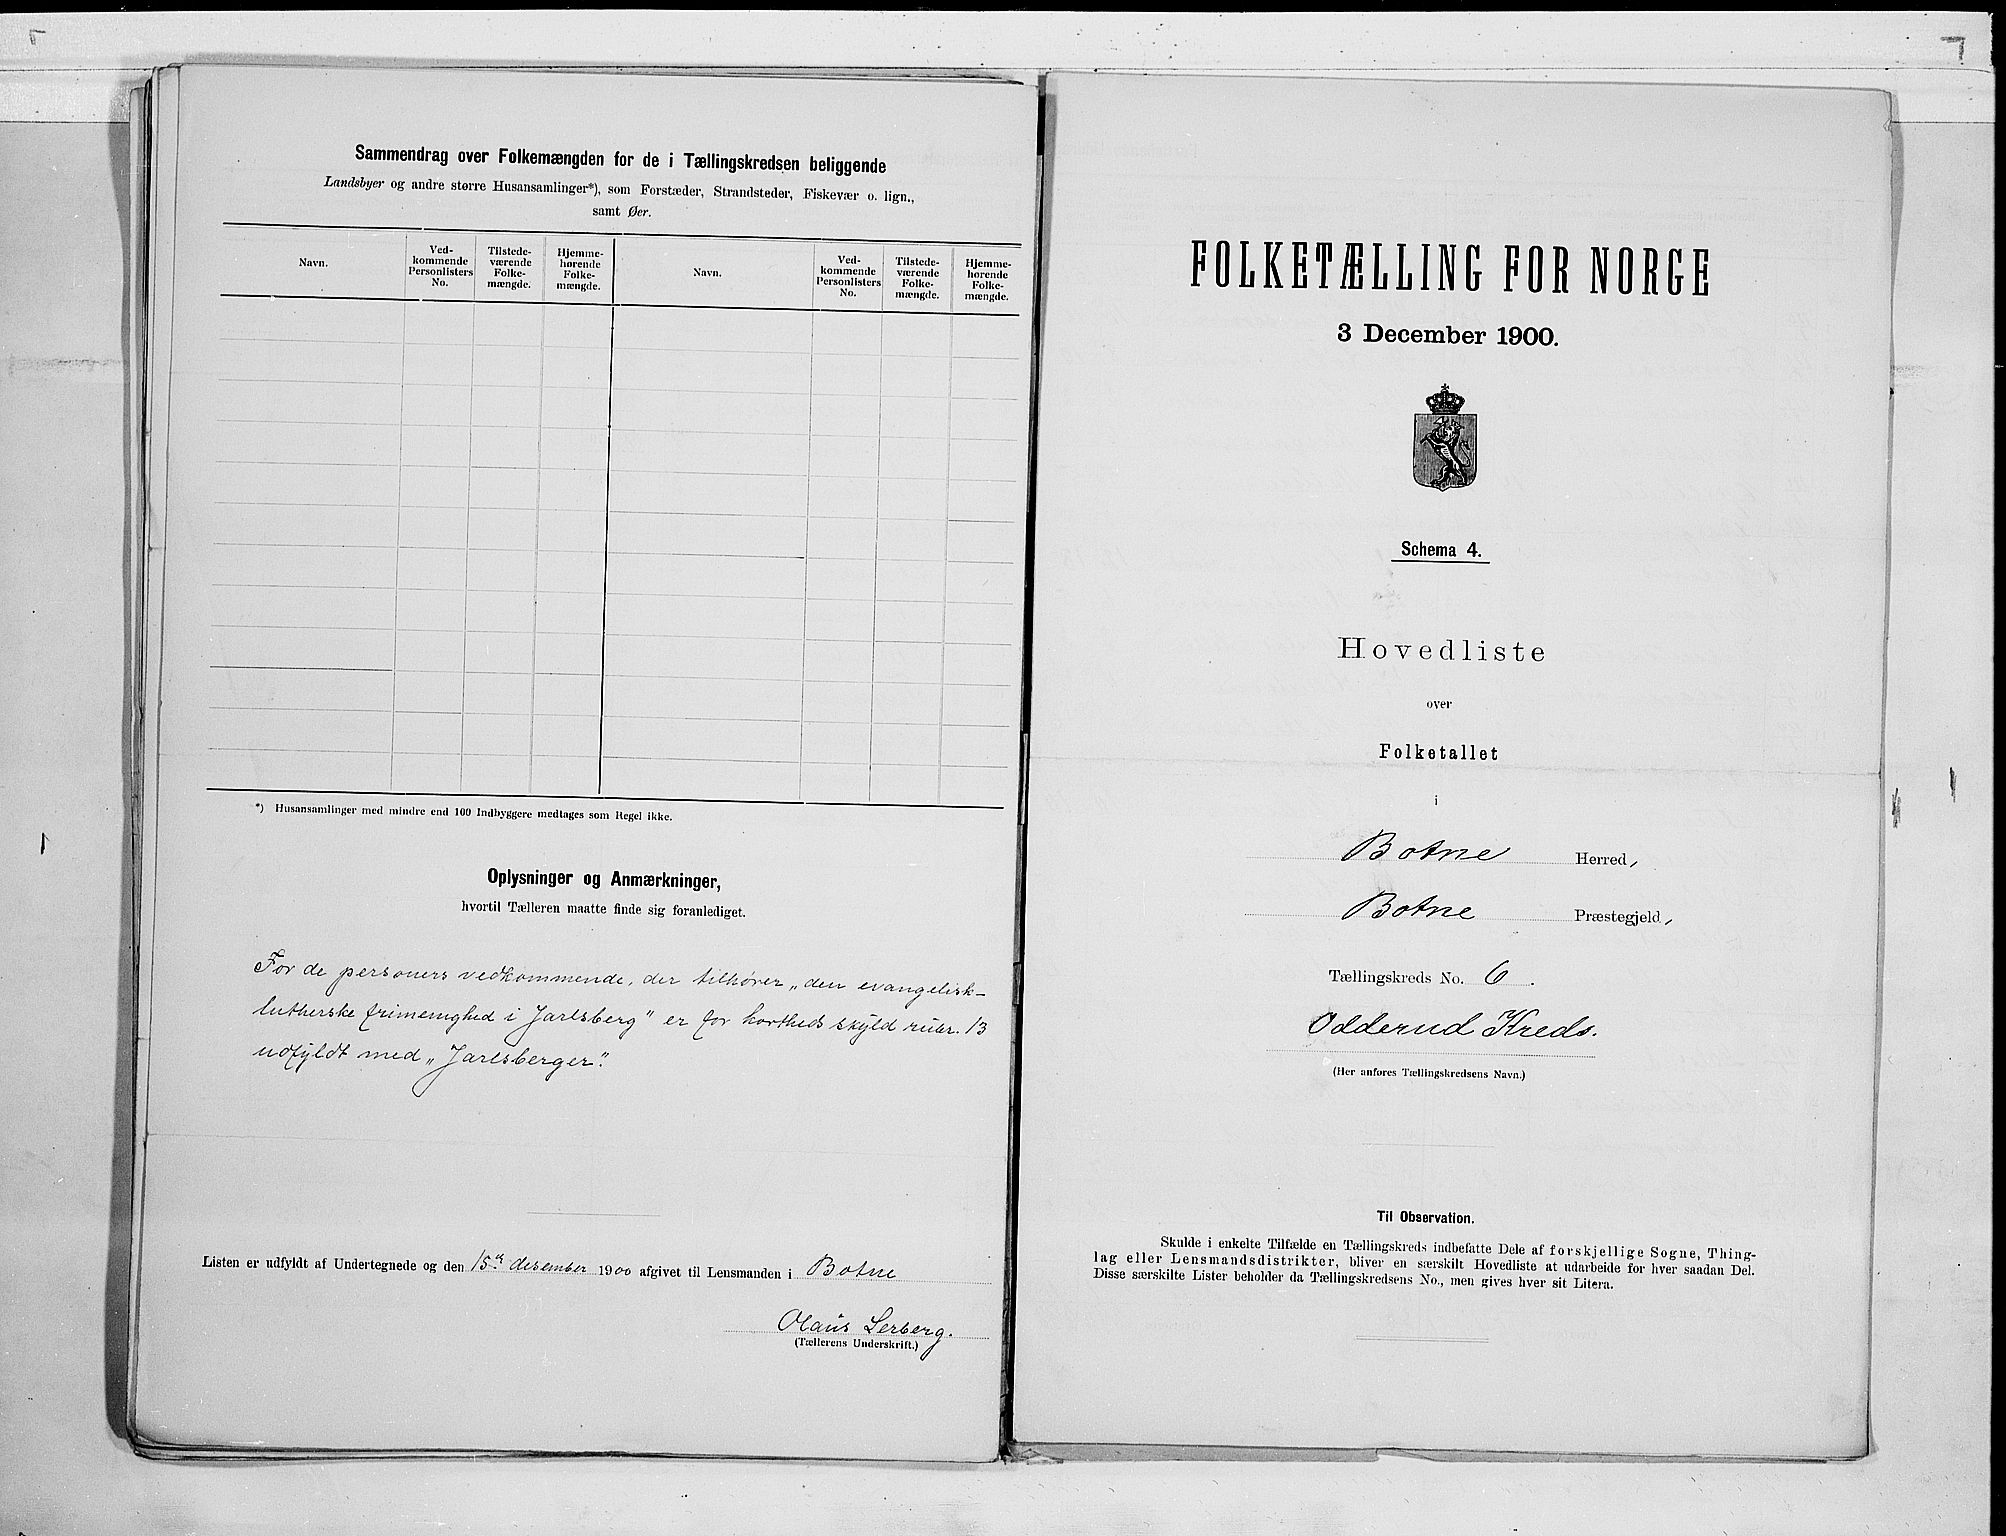 Sammendrag over Folkemængden for de i Tællingskredsen beliggende
Landsbyer og andre større Husansamlinger*), som Forstæder, Strandsteder, Fiskevær o. lign.,
samt Øer.
Navn.
Ved-
kommende
Personlisters
No.
Tilstede-
værende
Folke-
mængde.
Hjemme-
hørende
Folke-
mængde.
Navn.
Ved-
kommende
Personlisters
No.
Tilstede-
værende
Folke-
mængde.
Hjemme-
hørende
Folke-
mængde.
*) Husansamlinger med mindre end 100 Indbyggere medtages som Regel ikke.
Oplysninger og Anmærkninger,
hvortil Tælleren maatte finde sig foranlediget.
For de personers vedkommende, der tilhører „den evangelisk-
lutherske frimenighed i Jarlsberg" er for kortheds skyld rubr. 13
udfyldt med „Jarlsberger".
Listen er udfyldt af Undertegnede og den 15de desember 1900 afgivet til Lensmanden i Botne
Olaus Lerberg.
(Tællerens Underskrift.)
FOLKETÆLLING FOR NORGE
3 December 1900.
Schema 4.
Hovedliste
over
Folketallet
i
Botne Herred,
Botne Præstegjeld,
Tællingskreds No. 6.
Odderud Kreds.
(Her anføres Tællingskredsens Navn.)
Til Observation.
Skulde i enkelte Tilfælde en Tællingskreds indbefatte Dele af forskjellige Sogne, Thing-
lag eller Lensmandsdistrikter, bliver en særskilt Hovedliste at udarbeide for hver saadan Del.
Disse særskilte Lister beholder da Tællingskredsens No., men gives hver sit Litera.